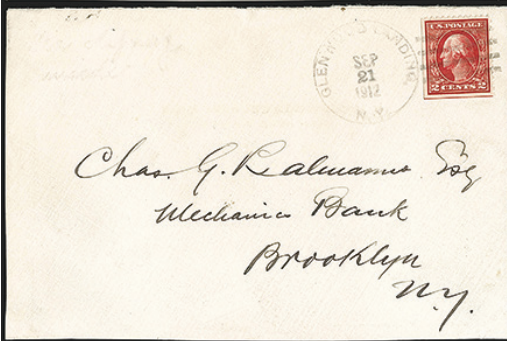 GLENWOOD LANDING,
SEP
21
1912
N.Y.
U.S. POSTAGE
2 CENTS 2
Chas. G.
Esq
Mechanics Bank
Brooklyn
N.Y.